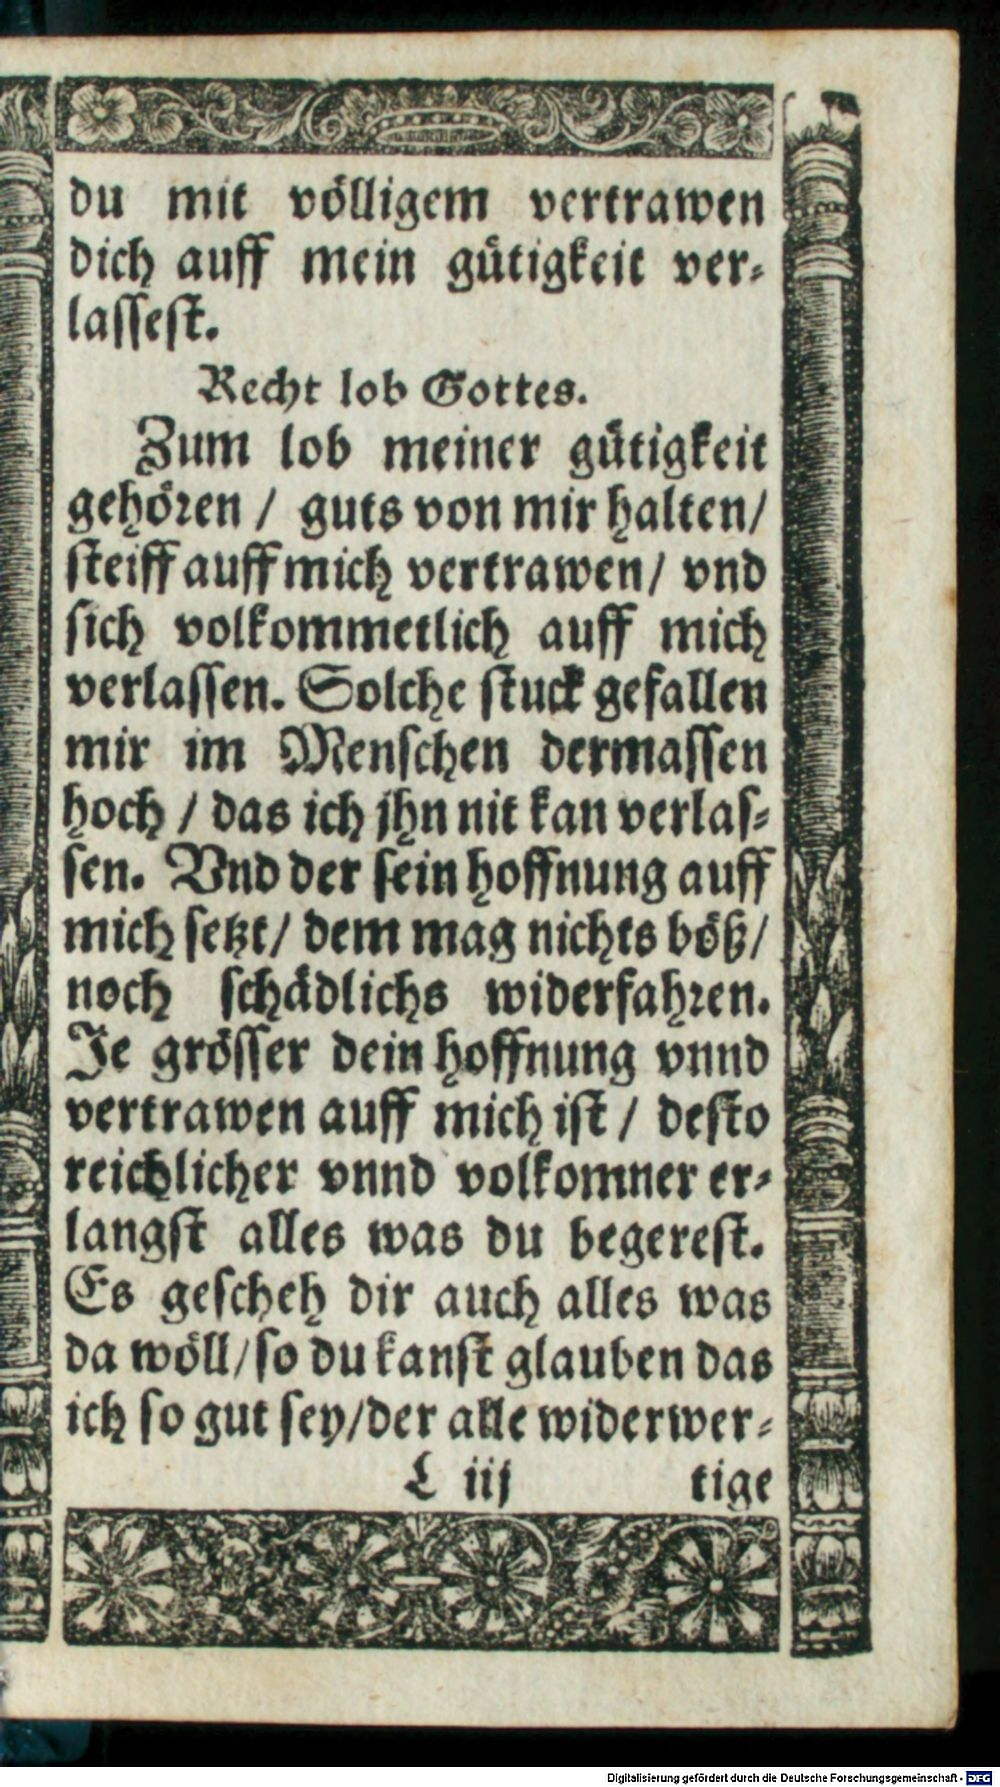 du mit völligem vertrawen
dich auff mein gütigkeit ver-
lassest.
Recht lob Gottes.
Zum lob meiner gütigkeit
gehören / guts von mir halten/
steiff auff mich vertrawen/ vnd
sich volkommetlich auff mich
verlassen. Solche stuck gefallen
mir im Menschen dermassen
hoch / das ich jhn nit kan verlas-
sen. Vnd der sein hoffnung auff
mich setzt/ dem mag nichts böß/
noch schädlichs widerfahren.
Je grösser dein hoffnung vnnd
vertrawen auff mich ist / desto
reichlicher vnnd volkomner er-
langst alles was du begerest.
Es gescheh dir auch alles was
da wöll/so du kanst glauben das
ich so gut sey/der alle widerwer-
L iij tige
Digitalisierung gefördert durch die Deutsche Forschungsgemeinschaft - DFG